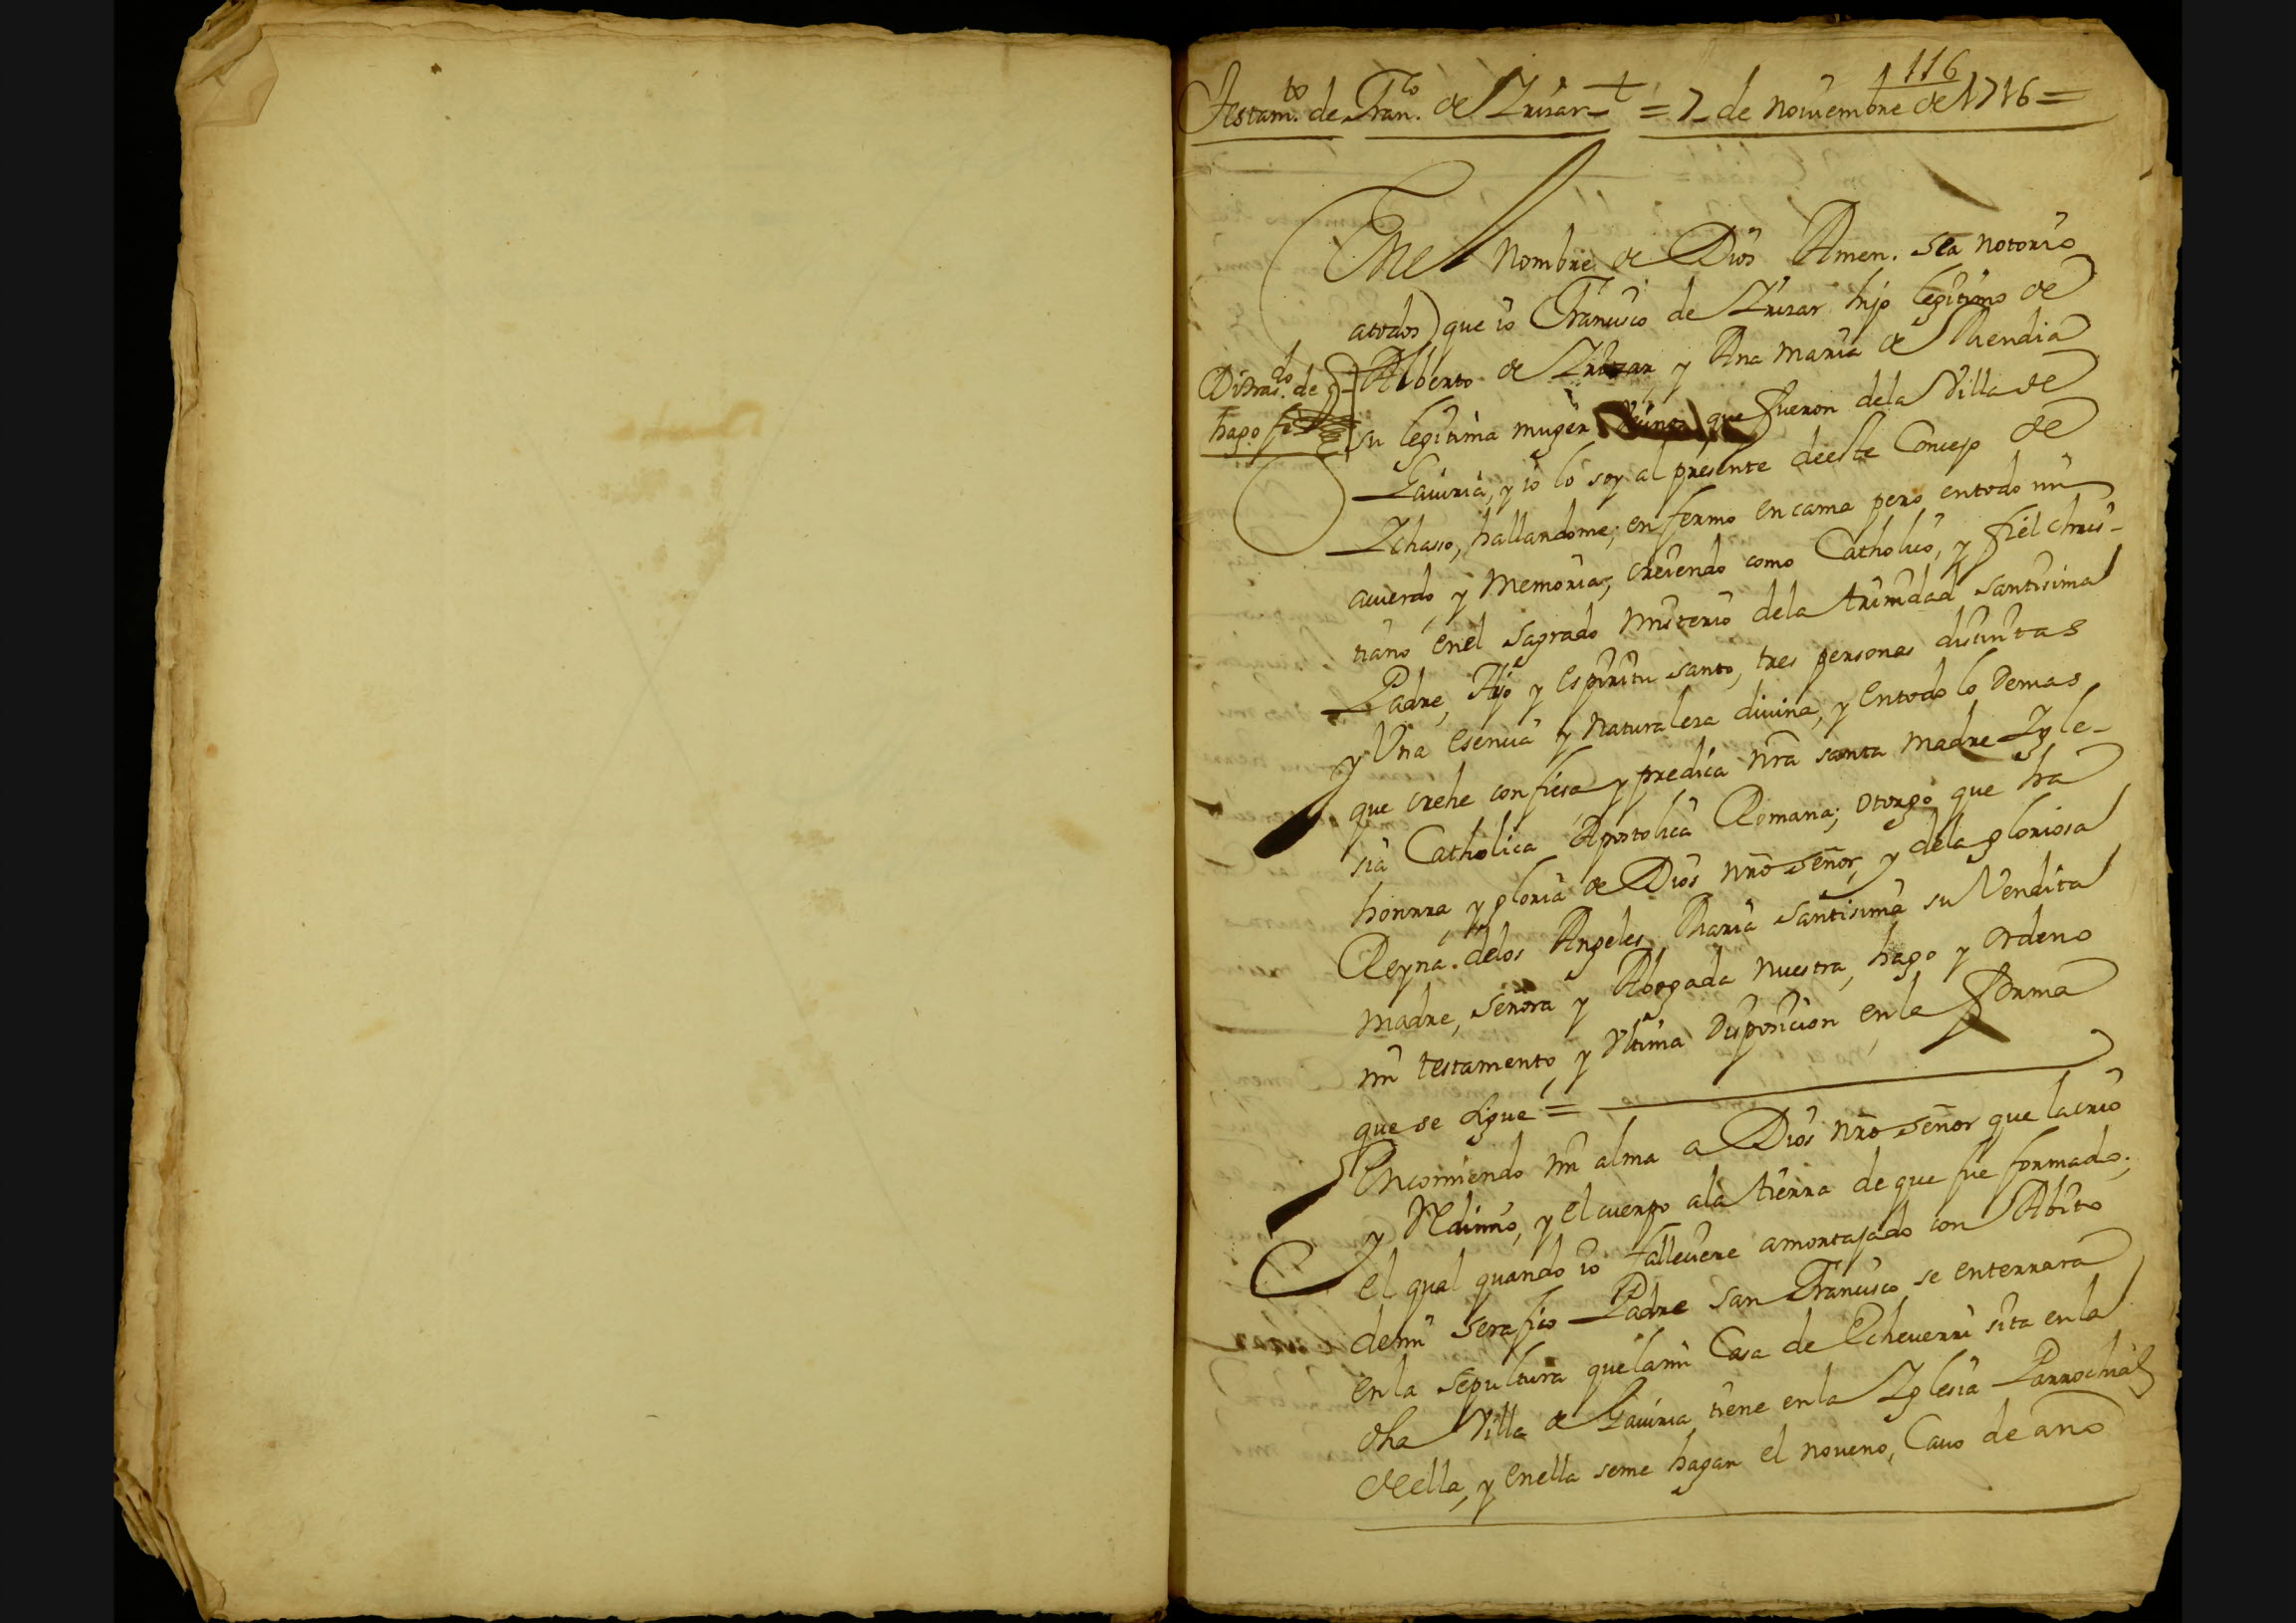 116
Testam.to de Fran.co de Yrizar = 7 de noviembre de 1716 =
Enel Nombre de Dios Amen. Sea notorio
atodos que io Francisco de Yrizar hijo legitimo de
Alberto de Yrizar y Ana Maria de Mendia
su legitima muger, que fueron dela Villa de
Gaviria, y io lo soy al presente deeste Concejo de
Ychasso, hallandome, enfermo en cama pero entodo mi
acuerdo y Memoria, creiendo como Catholico, y fiel chris-
tiano enel sagrado misterio dela trinidad santisima
Padre, Hijo y Espiritu santo, tres personas distintas
y Vna Esencia y naturalesa divina, y Entodo lo Demas
que crehe confiesa y predica nra santa madre Ygle-
sia Catholica Apostolica Romana; otorgo que ha
honrra y gloria de Dios nro señor, y dela gloriosa
Reyna delos Angeles Maria santisima su Vendita
madre, señora y Abogada nuestra, hago y ordeno
mi testamento, y Vltima Disposicion en la forma
que se sigue =
Encomiendo mi alma a Dios nro señor que la crio
y Redimio, y el cuerpo ala tierra de que fue formado;
el qual quando io falleciere amortajado con Abito
demi serafico Padre San Francisco se enterrara
en la sepultura que la mi Casa de Echeverri sita en la
dha Villa de Gaviria tiene en la Yglesia Parrochial
de ella, y Enella seme hagan el noveno, Cavo de año
Di tras.do de
hago fe